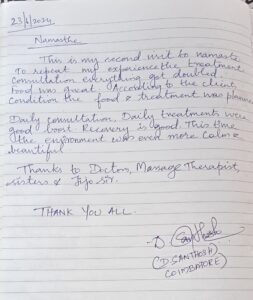 23/6/2024
Namasthe
This is my second visit to namaste
To repeat my experience the treatment
Consultation everything got doubled
Food was great. According to the client
Condition the food & treatment was planned
Daily consultation, Daily treatments were
good boost Recovery is good. This time
the environment was even more calm &
beautiful
Thanks to Doctors, Massage Therapist,
sisters & Jijo sir.
THANK YOU ALL.
(D SANTHOSH)
COIMBATORE)